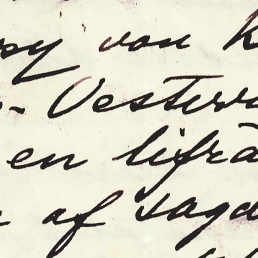 von
- Vesterv
en lifrä
af sagd